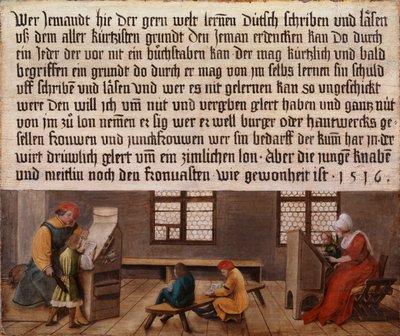 Wer Jemandt hie der gern welt lernen Dütsch schriben und läsen
uß dem aller kürtzisten grundt den Jeman erdencken kan Do durch
ein jeder der vor nit ein büchstaben kan der mag kürtzlich und bald
begriffen ein grundt do durch er mag von jm selbs lernen sin schuld
uff schribē und läsen und wer es nit gelernen kan so ungeschickt
were Den will ich vm̄ nüt und vergeben glert haben und gantz nüt
von jm zü lon nemen er sig wer er well burger oder hantwercks ge-
sellen frouwen und junckfrouwen wer sin bedarff der kum̄ har jn der
wirt drüwlich glert vm̄ ein zimlichen lon · Aber die junge knabē
und meitlin noch den fronuasten wie gewonheit ist · 1516 ·